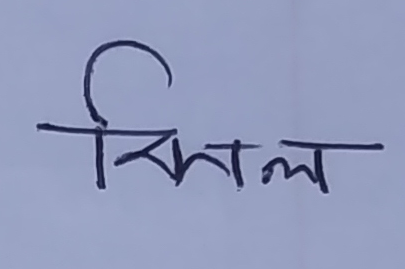 বিমল